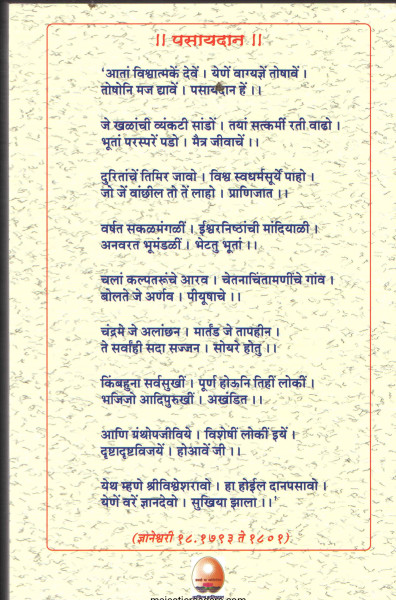 || पसायदान ||
‘आतां विश्वात्मकें देवें । येणें वाग्यज्ञें तोषावें ।
तोषोनि मज द्यावें । पसायदान हें ।।
जे खळांची व्यंकटी सांडो । तयां सत्कर्मी रती वाढो ।
भूतां परस्परें पडो । मैत्र जीवाचें ।।
दुरितांचें तिमिर जावो । विश्व स्वधर्मसूर्यें पाहो ।
जो जें वांछील तो तें लाहो । प्राणिजात ।।
वर्षत सकळमंगळीं । ईश्वरनिष्ठांची मांदियाळी ।
अनवरत भूमंडळीं । भेटतु भूतां ।।
चलां कल्पतरूंचे आरव । चेतनाचिंतामणींचे गांव ।
बोलते जे अर्णव । पीयूषाचे ।।
चंद्रमे जे अलांछन । मार्तंड जे तापहीन ।
ते सर्वांही सदा सज्जन । सोयरे होतु ।।
किंबहुना सर्वसुखीं । पूर्ण होऊनि तिहीं लोकीं ।
भजिजो आदिपुरुखीं । अखंडित ।।
आणि ग्रंथोपजीविये । विशेषीं लोकीं इयें ।
दृष्टादृष्टविजयें । होआवें जी ।।
येथ म्हणे श्रीविश्वेशरावो । हा होईल दानपसावो ।
येणें वरें ज्ञानदेवो । सुखिया झाला ।।’
(ज्ञानेश्वरी १८.१७९३ ते १८०१)